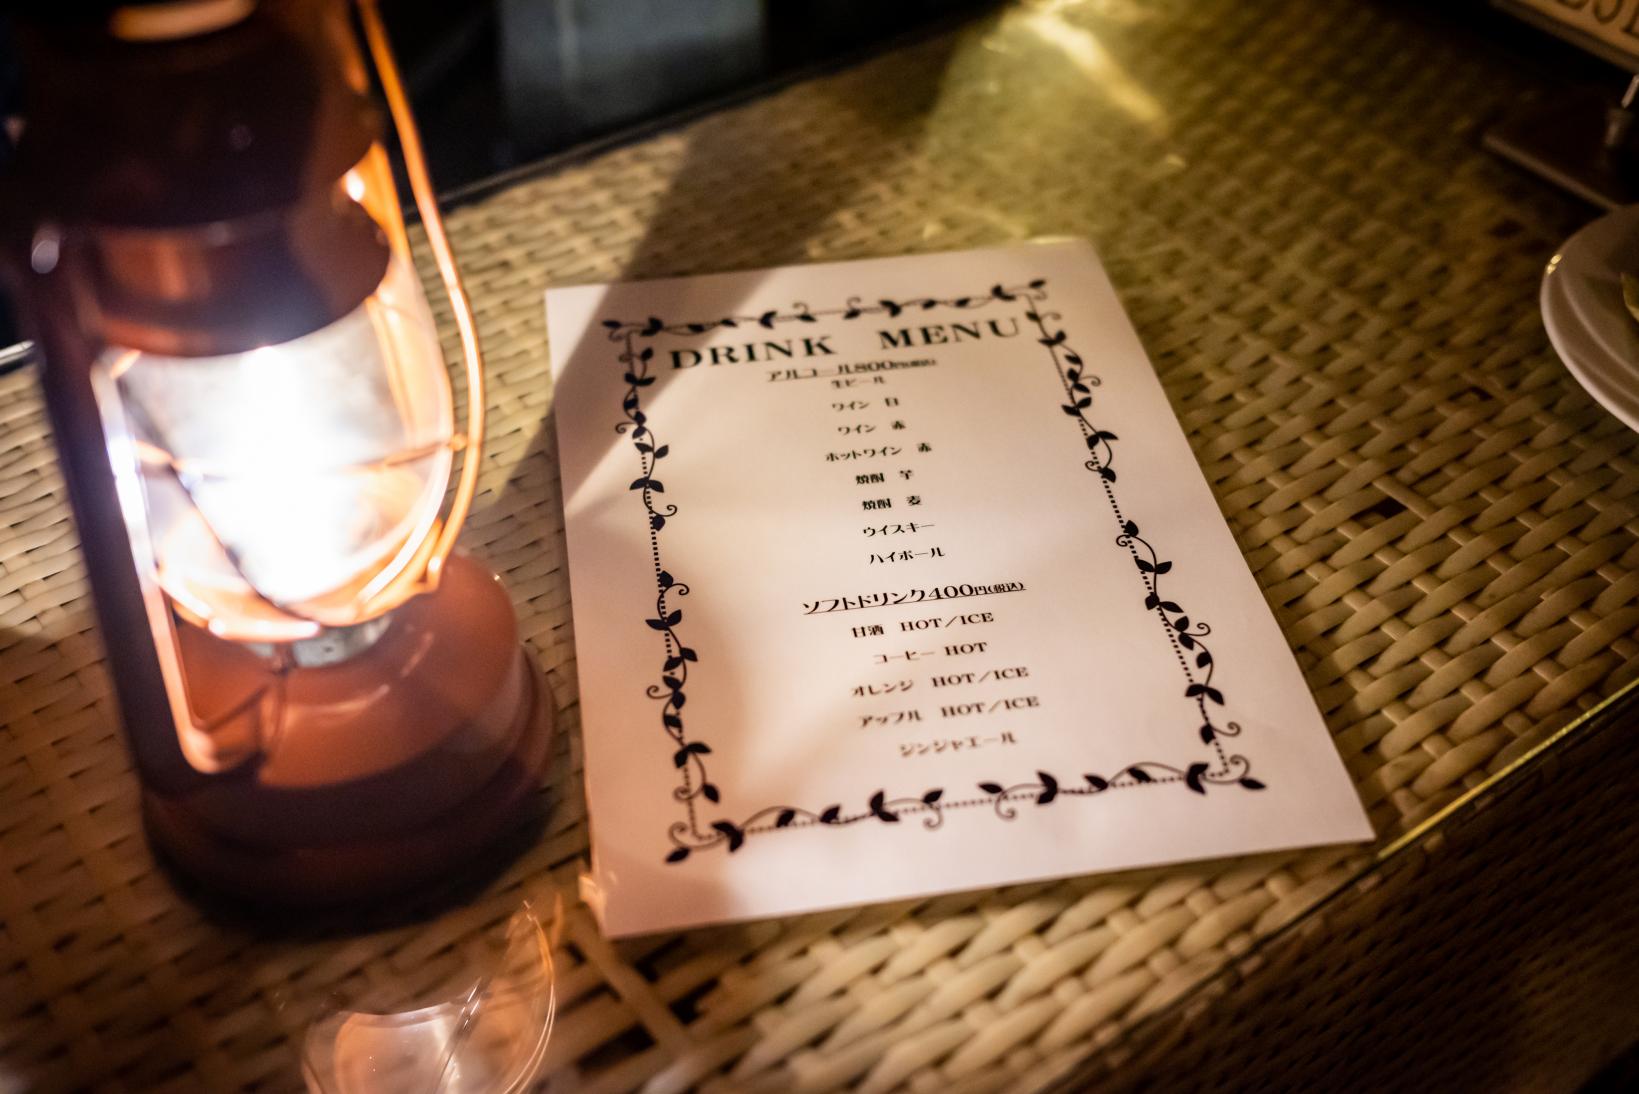 DRINK MENU
アルコール800円(税込)
生ビール
ワイン 白
ワイン 赤
ホットワイン 赤
焼酎 芋
焼酎 麦
ウイスキー
ハイボール
ソフトドリンク400円(税込)
甘酒 HOT/ICE
コーヒー HOT
オレンジ HOT/ICE
アップル HOT/ICE
ジンジャエール